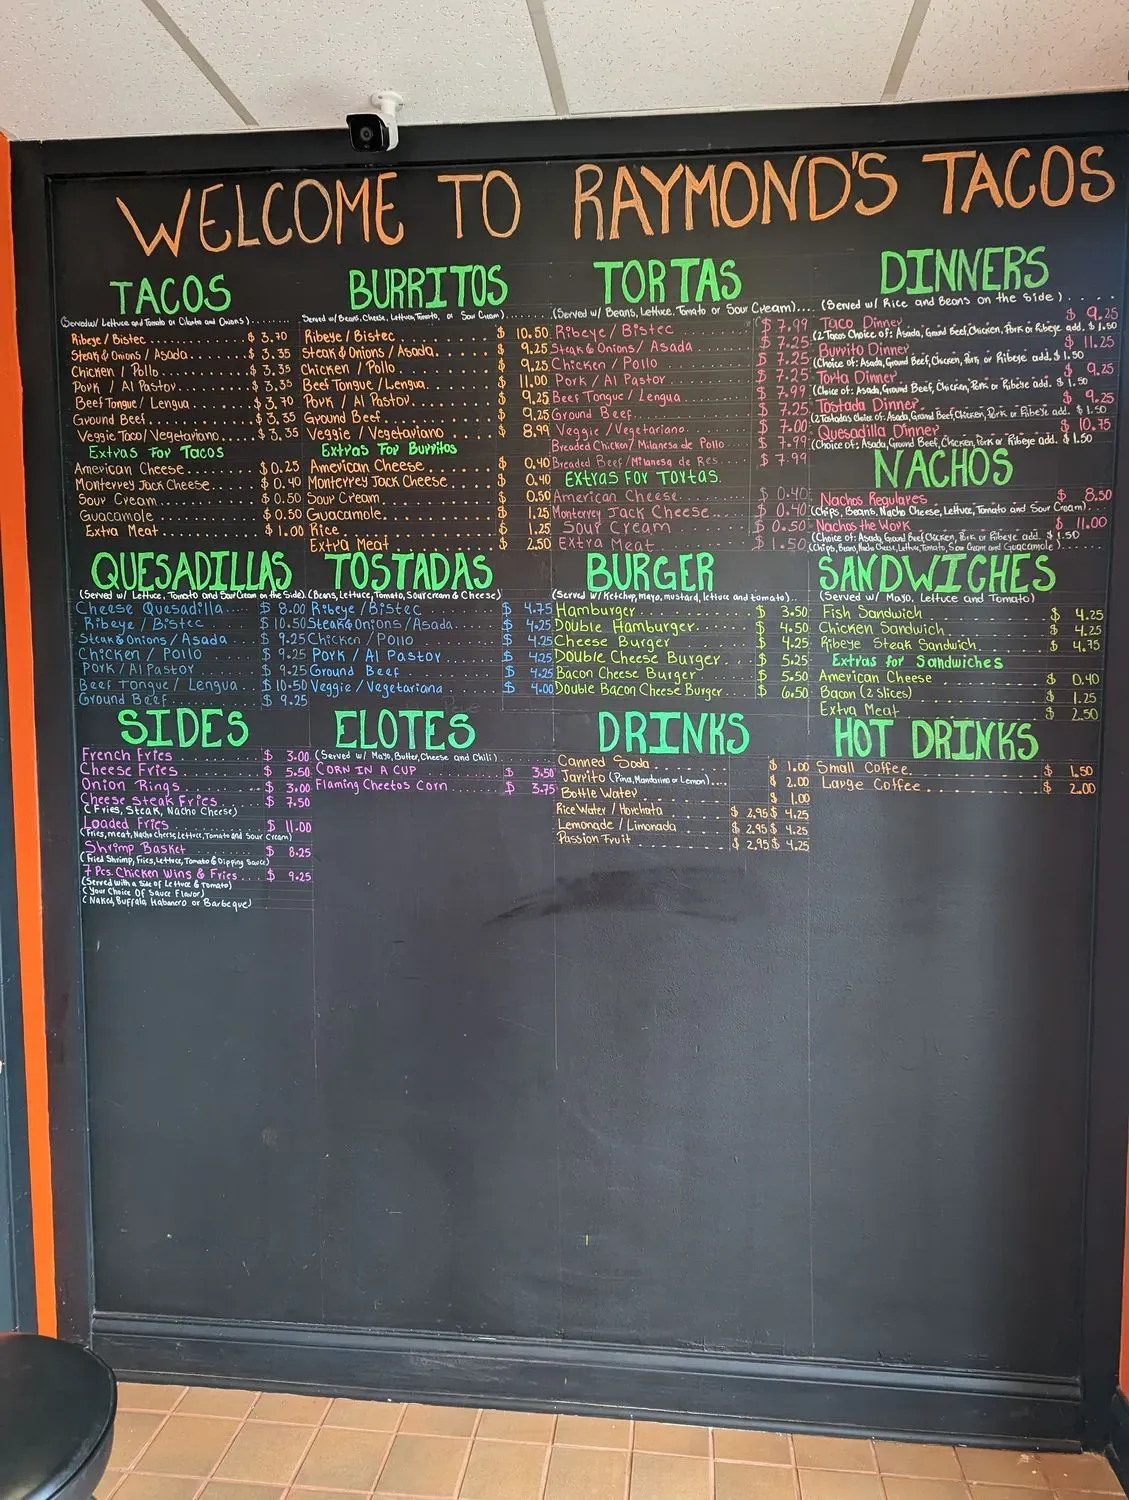 WELCOME TO RAYMOND'S TACOS
TACOS
(Served w/ Lettuce and Tomato or Cilantro and Onions)
Ribeye / Bistec $ 3.70
Steak & Onions / Asada $ 3.35
Chicken / Pollo $ 3.35
Pork / Al Pastor $ 3.35
Beef Tongue / Lengua $ 3.70
Ground Beef $ 3.35
Veggie Taco/Vegetariano $ 3.35
Extras For Tacos
American Cheese $ 0.25
Monterrey Jack Cheese $ 0.40
Sour Cream $ 0.50
Guacamole $ 0.50
Extra Meat $ 1.00
BURRITOS
(Served w/ Beans, Cheese, Lettuce, Tomato, or Sour Cream)
Ribeye / Bistec $ 10.50
Steak & Onions / Asada $ 9.25
Chicken / Pollo $ 9.25
Beef Tongue / Lengua $ 11.00
Pork / Al Pastor $ 9.25
Ground Beef $ 9.25
Veggie / Vegetariano $ 8.99
Extras For Burritos
American Cheese $ 0.40
Monterrey Jack Cheese $ 0.40
Sour Cream $ 0.50
Guacamole $ 1.25
Rice $ 1.25
Extra Meat $ 2.50
TORTAS
(Served w/ Beans, Lettuce, Tomato or Sour Cream)
Ribeye / Bistec $ 7.99
Steak & Onions / Asada $ 7.25
Chicken / Pollo $ 7.25
Pork / Al Pastor $ 7.25
Beef Tongue / Lengua $ 7.99
Ground Beef $ 7.25
Veggie / Vegetariano $ 7.00
Breaded Chicken / Milanesa de Pollo $ 7.99
Breaded Beef / Milanesa de Res $ 7.99
Extras For Tortas
American Cheese $ 0.40
Monterrey Jack Cheese $ 0.40
Sour Cream $ 0.50
Extra Meat $ 1.50
DINNERS
(Served w/ Rice and Beans on the Side)
Taco Dinner $ 9.25
(2 Tacos Choice of: Asada, Ground Beef, Chicken, Pork or Ribeye add. $ 1.50
Burrito Dinner $ 11.25
(Choice of: Asada, Ground Beef, Chicken, Pork or Ribeye add. $ 1.50
Torta Dinner $ 9.25
(Choice of: Asada, Ground Beef, Chicken, Pork or Ribeye add. $ 1.50
Tostada Dinner $ 9.25
(2 Tostadas Choice of: Asada, Ground Beef, Chicken, Pork or Ribeye add. $ 1.50
Quesadilla Dinner $ 10.75
(Choice of: Asada, Ground Beef, Chicken, Pork or Ribeye add. $ 1.50
NACHOS
Nachos Regulares $ 8.50
(Chips, Beans, Nacho Cheese, Lettuce, Tomato and Sour Cream)
Nachos the Work $ 11.00
(Choice of: Asada, Ground Beef, Chicken, Pork or Ribeye add. $ 1.50
(Chips, Beans, Nacho Cheese, Lettuce, Tomato, Sour Cream and Guacamole)
QUESADILLAS
(Served w/ Lettuce, Tomato and Sour Cream on the Side)
Cheese Quesadilla $ 8.00
Ribeye / Bistec $ 10.50
Steak & Onions / Asada $ 9.25
Chicken / Pollo $ 9.25
Pork / Al Pastor $ 9.25
Beef Tongue / Lengua $ 10.50
Ground Beef $ 9.25
TOSTADAS
(Beans, Lettuce, Tomato, Sour Cream & Cheese)
Ribeye / Bistec $ 4.75
Steak & Onions / Asada $ 4.25
Chicken / Pollo $ 4.25
Pork / Al Pastor $ 4.25
Ground Beef $ 4.25
Veggie / Vegetariana $ 4.00
BURGER
(Served w/ Ketchup, mayo, mustard, lettuce and tomato)
Hamburger $ 3.50
Double Hamburger $ 4.50
Cheese Burger $ 4.25
Double Cheese Burger $ 5.25
Bacon Cheese Burger $ 5.50
Double Bacon Cheese Burger $ 6.50
SANDWICHES
(Served w/ Mayo, Lettuce and Tomato)
Fish Sandwich $ 4.25
Chicken Sandwich $ 4.25
Ribeye Steak Sandwich $ 4.75
Extras for Sandwiches
American Cheese $ 0.40
Bacon (2 slices) $ 1.25
Extra Meat $ 2.50
SIDES
French Fries $ 3.00
Cheese Fries $ 5.50
Onion Rings $ 3.00
Cheese steak Fries $ 7.50
(Fries, Steak, Nacho Cheese)
Loaded Fries $ 11.00
(Fries, meat, Nacho Cheese, Lettuce, Tomato and Sour Cream)
Shrimp Basket $ 8.25
(Fried Shrimp, Fries, Lettuce, Tomato & Dipping Sauce)
7 Pcs. Chicken Wins & Fries $ 9.25
(Served with a Side of Lettuce & Tomato)
(Your Choice Of Sauce Flavor)
(Naked, Buffalo, Habanero or Barbeque)
ELOTES
(Served w/ Mayo, Butter, Cheese and Chili)
CORN IN A CUP $ 3.50
Flaming Cheetos Corn $ 3.75
DRINKS
Canned Soda $ 1.00
Jarrito (Pina, Mandarina or Lemon) $ 2.00
Bottle Water $ 1.00
Rice Water / Horchata $ 2.95 $ 4.25
Lemonade / Limonada $ 2.95 $ 4.25
Passion Fruit $ 2.95 $ 4.25
HOT DRINKS
Small Coffee $ 1.50
Large Coffee $ 2.00